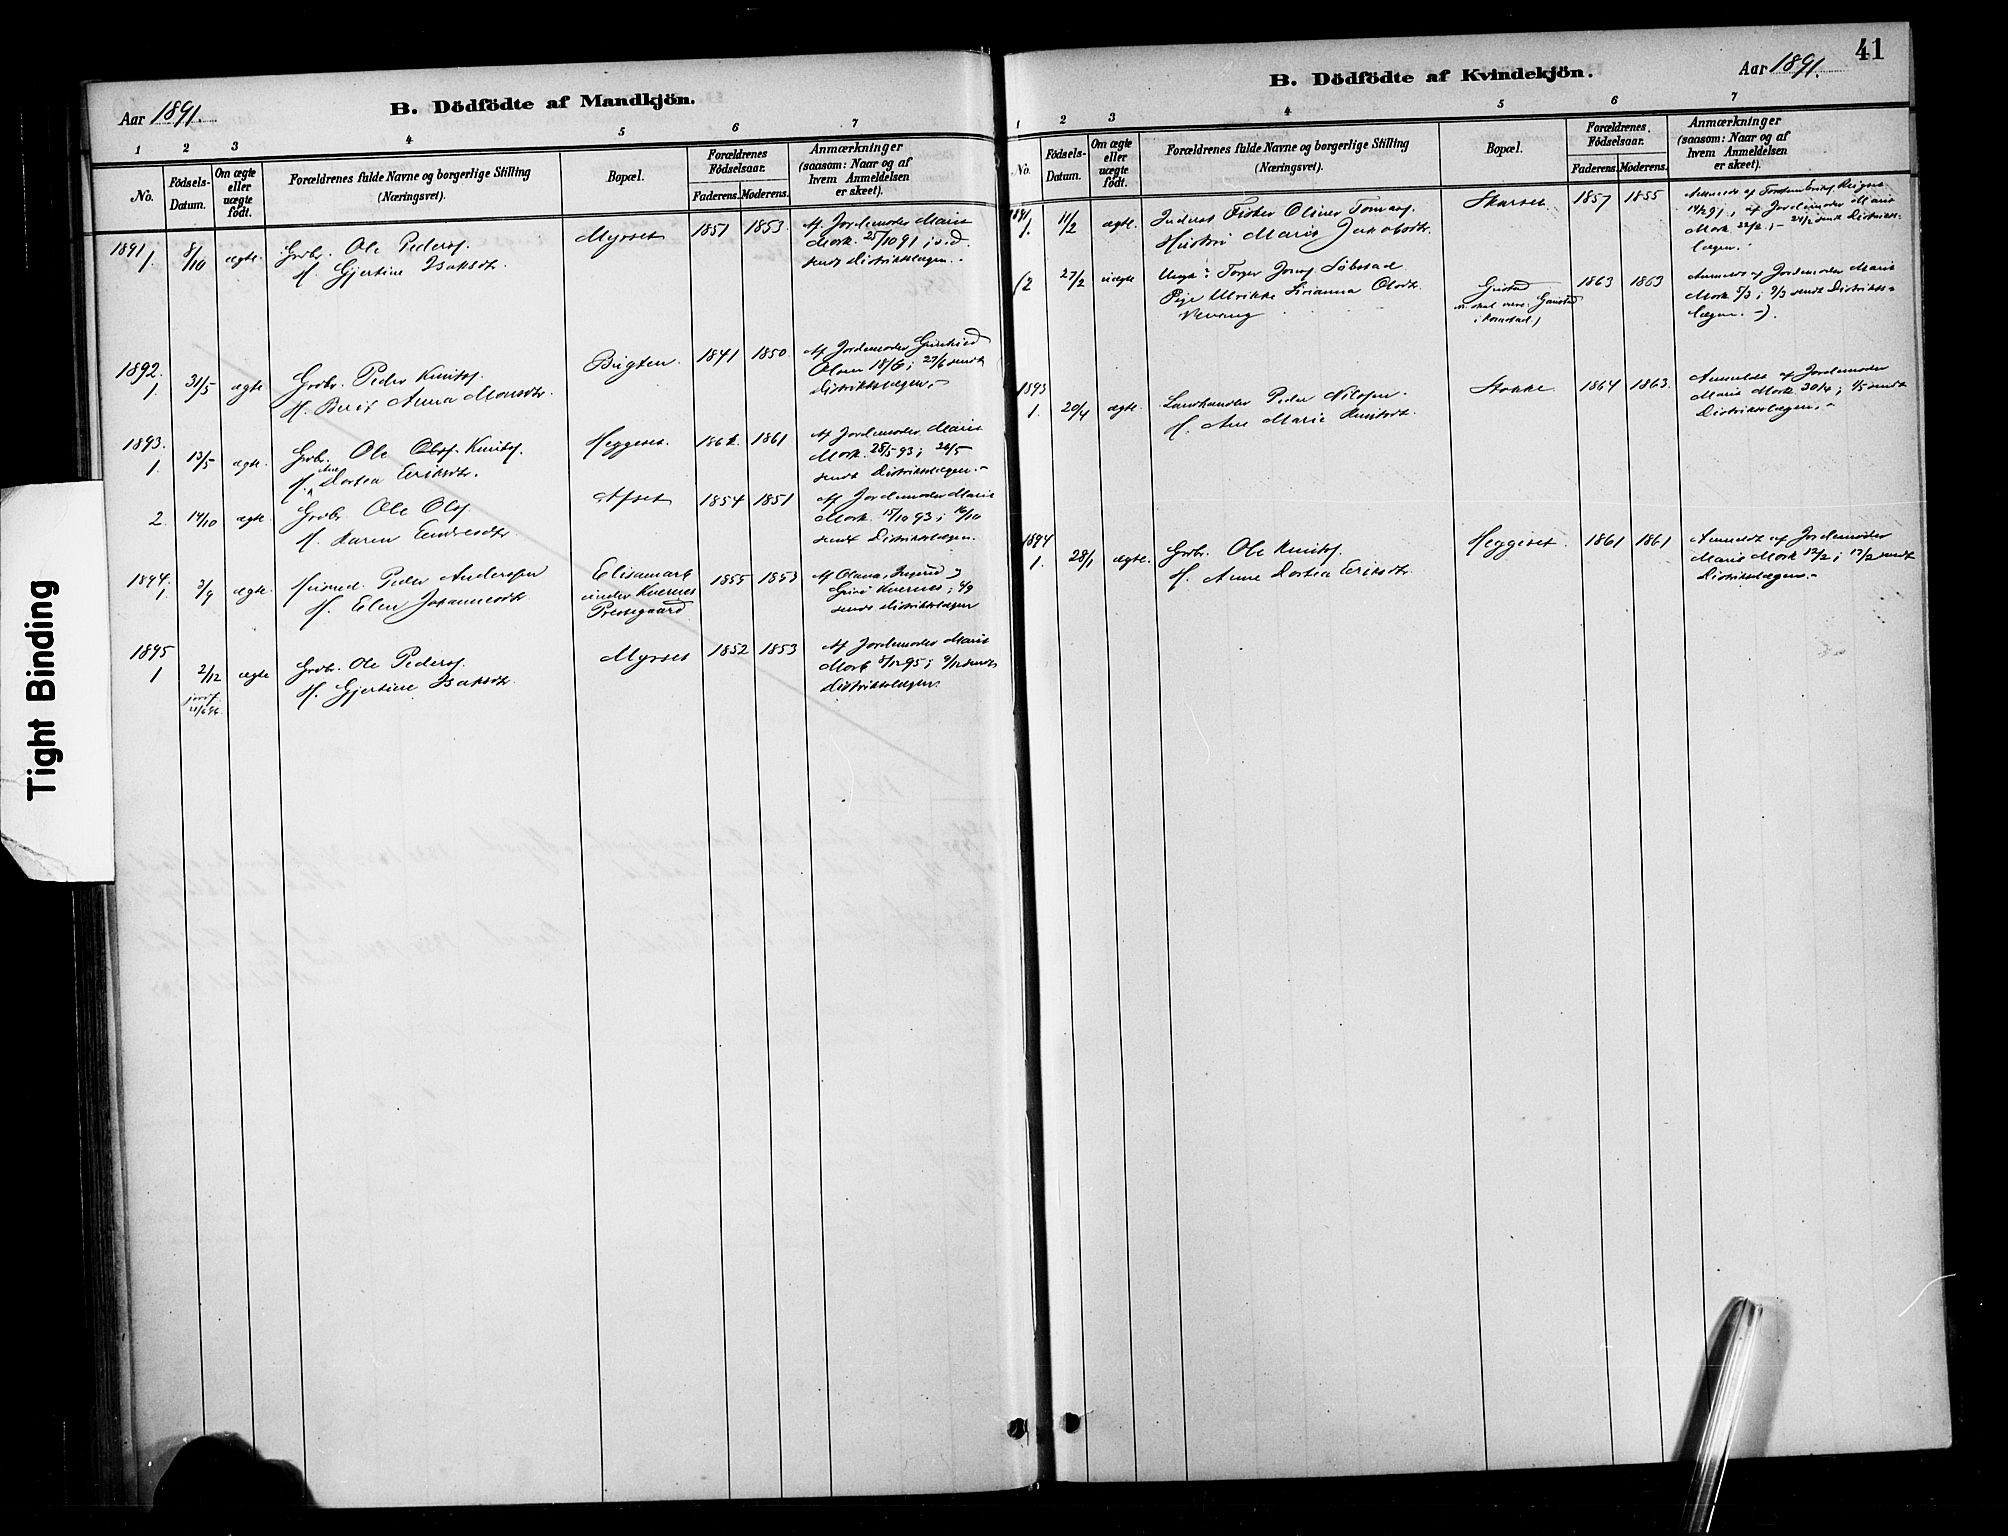 Tight Binding
Aar 1891.
B. Dödfödte af Mandkjön.
1 2 3 4 5 6 7
No.
Födsels-
Datum.
Om ægte
eller
uægte
födt.
Forældrenes fulde Navne og borgerlige Stilling
(Næringsvei).
Bopæl.
Forældrenes
Födselsaar.
Faderens. Moderens.
Anmærkninger
(saasom: Naar og af
hvem Anmeldelsen
er skeet).
1891
1. 8/10 ægte. Grdbr. Ole Peders.
H. Gjertine Isaksdtr.
Myrset 1851 1853.
Af Jordemoder Marit
Mork 25/10 91 ;
sendt Distriktslægen.
1892.
1. 31/5 ægte Grdbr. Peder Knuts.
H. Berit Anna Monsdtr.
Bugten. 1841 1850
Af Jordemoder
Olsen 18/6; 27/6 sendt
Distriktslægen.
1893.
1 13/5 ægte. Grdbr. Ole Knuts.
H. Ane Dortea Eriksdtr.
Heggeset. 1861
Af Jordemoder Marit
Mork. 28/5 93;
sendt Distriktslægen.
2. 14/10 ægte Grdbr. Ole Ols.
H. Karen
1854 1851
Af Jordemoder Marit
Mork. 15/10 93; 16/10
sendt Distriktslægen.
1894.
1 ægte. Peder Andersen
H. Elen Johannesdtr.
Elisamark
under Kvernes
Prestegaard
1855 1853
Af Olava,
Kvernes; 4/9
sendt distriktslægen
1895
1 2/12 ægte Grdbr. Ole Peders.
H. Gjertine Isaksdtr.
Myrset 1852 1853
Af Jordemoder Marit
Mork 8/12 95; 9/12 sendt
Distriktslægen.
41
Aar 1891.
B. Dödfödte af Kvindekjön.
1 2 3 4 5 6 7
No.
Födsels-
Datum.
Om ægte
eller
uægte
födt.
Forældrenes fulde Navne og borgerlige Stilling
(Næringsvei).
Bopæl.
Forældrenes
Födselsaar.
Faderens. Moderens.
Anmærkninger
(saasom: Naar og af
hvem Anmeldelsen
er skeet).
1891
1. 11/2 ægte. Inderst Fisker Oliver Tomas.
Hustru Marit Jakobsdtr.
Skarset 1857 1855
14/2 91; af Jordemoder Marit
Mork 22/2; 24/2 sendt Distrikts-
lægen.
(2 27/2 uægte Ungk: Torger Jons. Söbstad
Pige Ulrikke Sirianna Olsdtr.
1863 1863
Anmeldt af Jordemoder Marit
Mork 5/3; 9/3 sendt Distrikts-
lægen.)
1893
1. 20/4 ægte. Landhandler Peder Nilssen
H. Ane Marie Knutsdt.
Stokke 1864 1863.
Anmeldt af Jordemoder
Marit Mork 30/4; 1/5 sendt
Distriktslægen.
1894
1. 28/1 ægte. Grbr. Ole Knuts.
H. Anne Dortea Eriksdtr.
Heggeset 1861 1861
Anmeldt af Jordemoder
Marit Mork 12/2; 17/2 sendt
Distriktslægen.